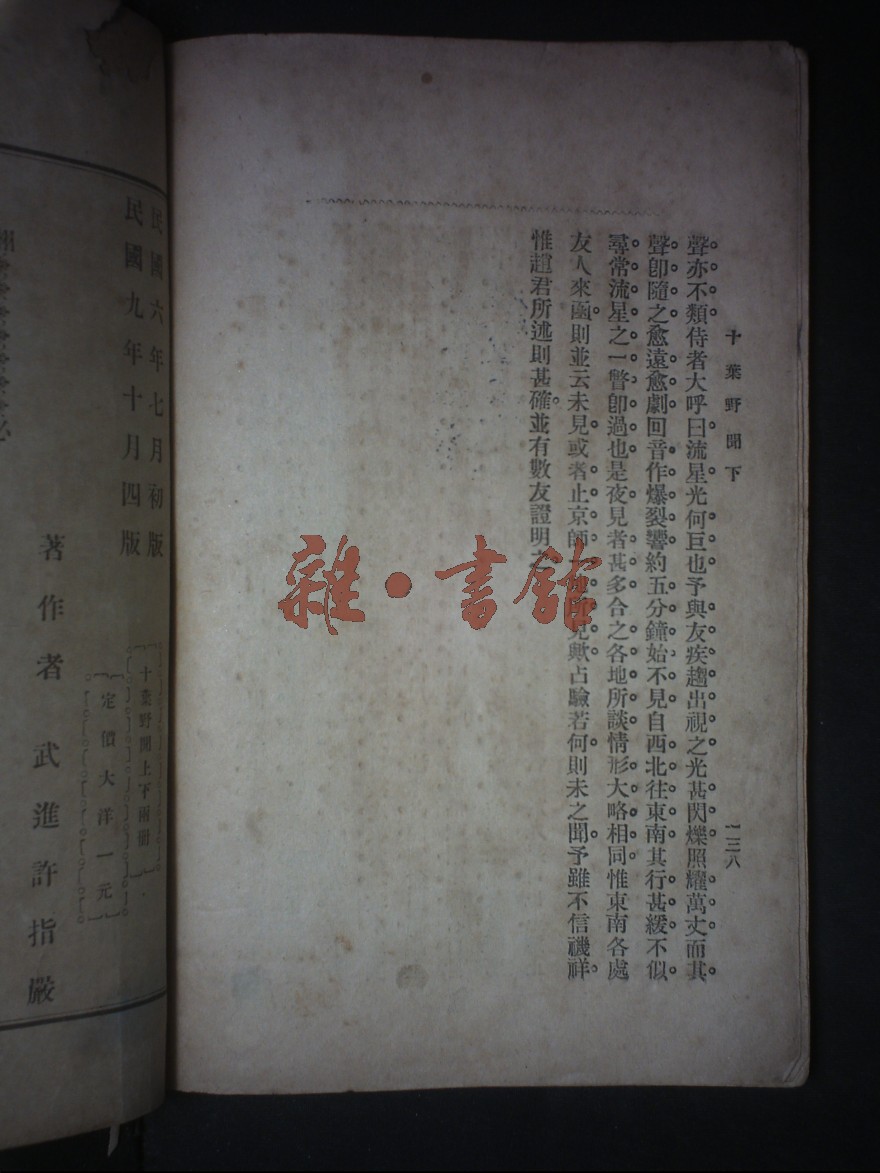 十葉野聞下
一三八
聲亦不類侍者大呼曰流星光何巨也予與友疾趨出視之光甚閃爍照耀萬丈而其
聲卽隨之愈遠愈劇回音作爆裂響約五分鐘始不見自西北往東南其行甚緩不似
尋常流星之一瞥卽過也是夜見者甚多合之各地所談情形大略相同惟東南各處
友人來函則並云未見或者止京師 地所見歟占驗若何則未之聞予雖不信禨祥
惟趙君所述則甚確並有數友證明之
雜·書館
民國六年七月初版
民國九年十月四版
十葉野聞上下兩冊
定價大洋一元
著作者 武進許指嚴